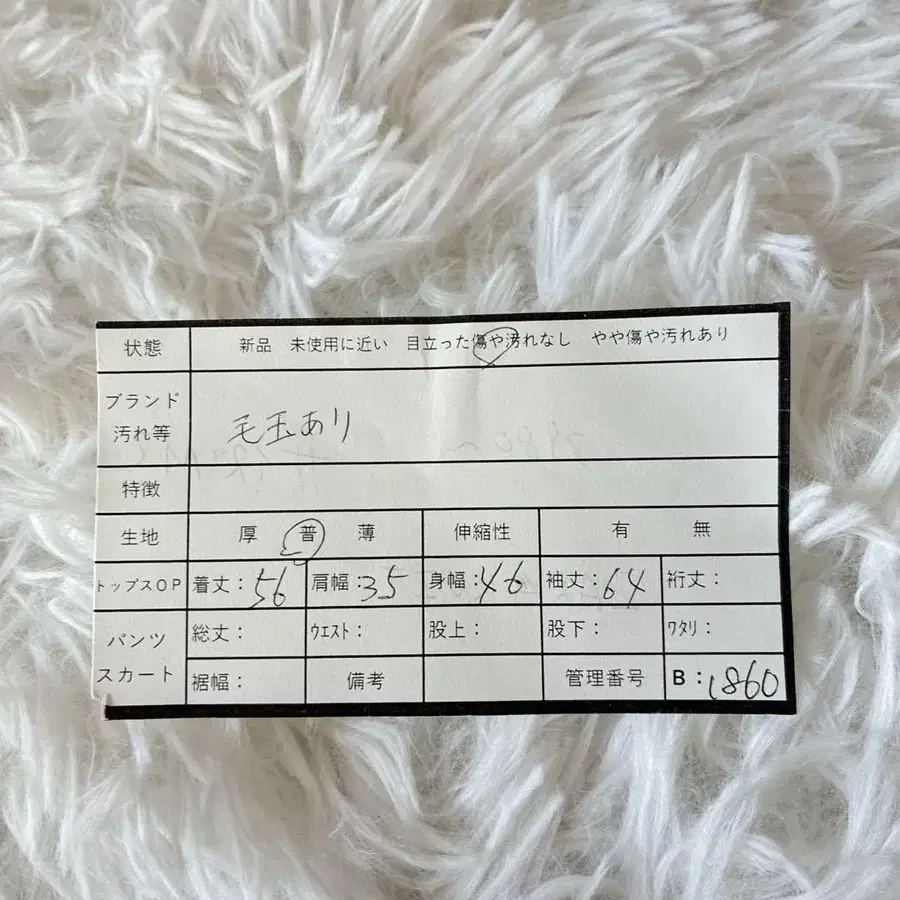 状態 新品 未使用に近い 目立った傷や汚れなし やや傷や汚れあり
ブランド
汚れ等 毛玉あり
特徴
生地 厚 普 薄 伸縮性 有 無
トップスOP 着丈:56 肩幅:35 身幅:46 袖丈:64 裄丈:
パンツ
スカート
総丈: ウエスト: 股上: 股下: ワタリ:
裾幅: 備考 管理番号 B:1860